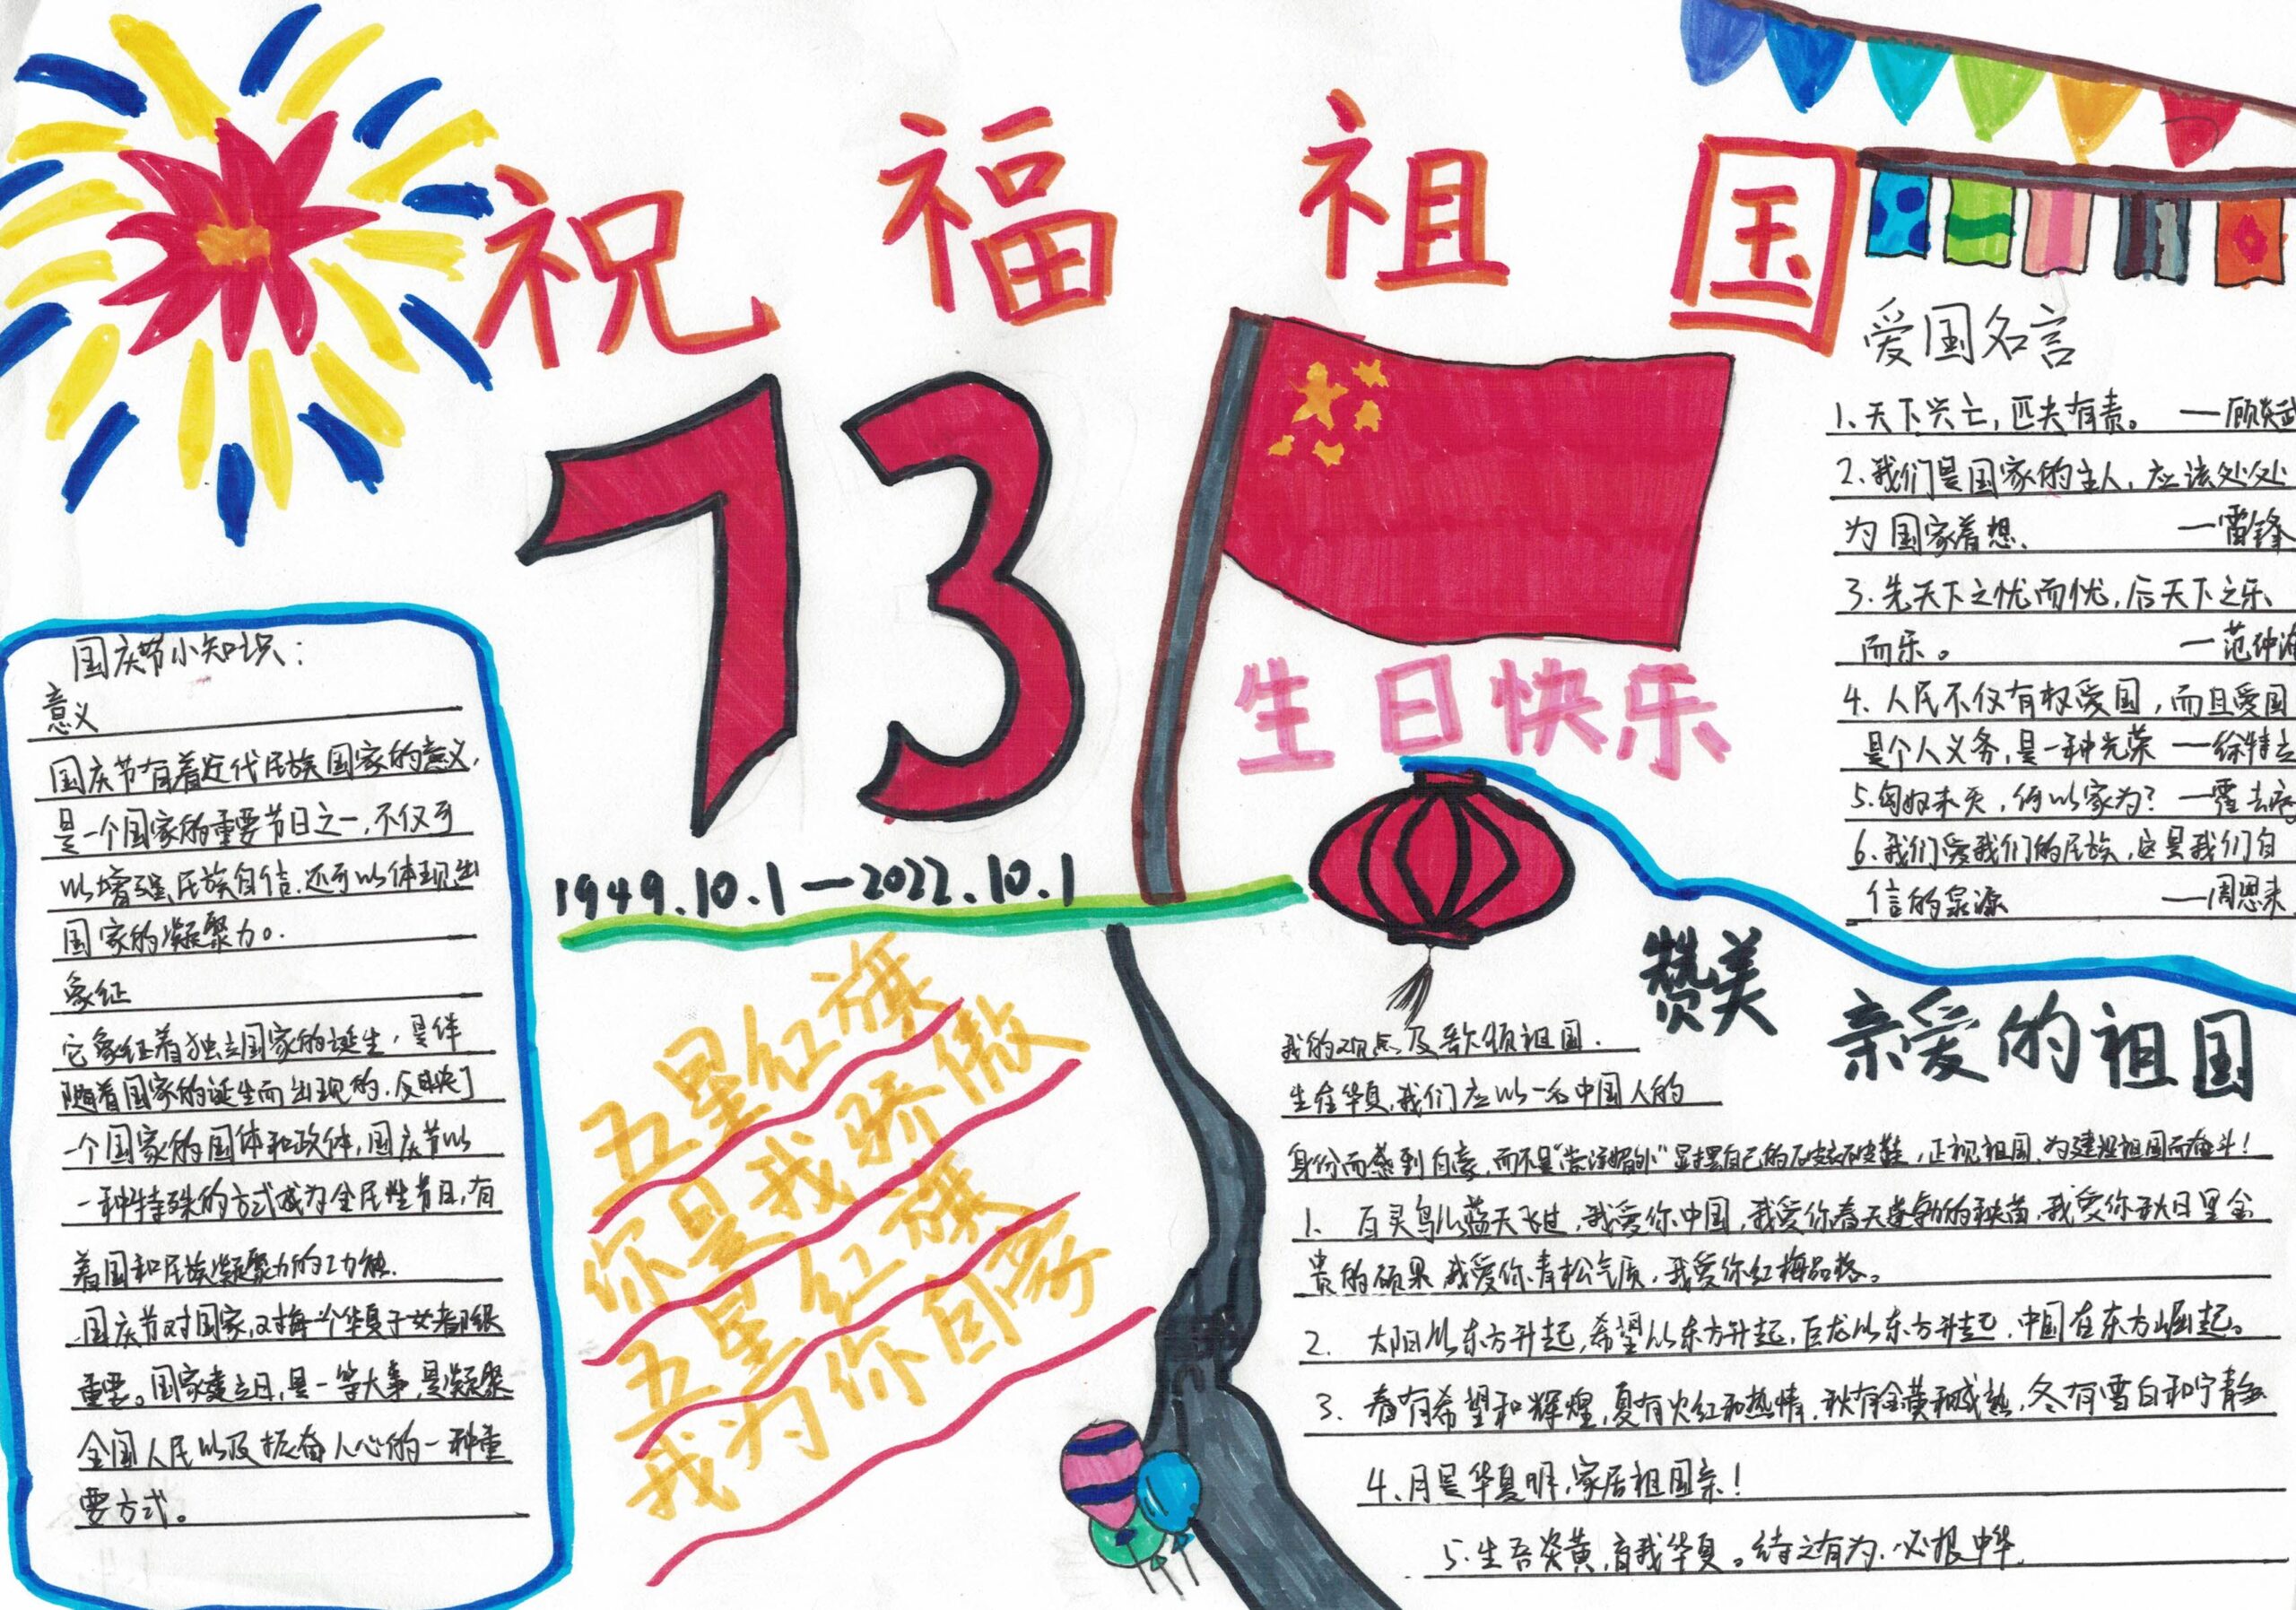 祝福祖国
73
1949.10.1—2022.10.1
生日快乐
国庆节小知识：
意义
国庆节有着近代民族国家的意义，
是一个国家的重要节日之一，不仅可
以增强民族自信，还可以体现出
国家的凝聚力。
象征
它象征着独立国家的诞生，是伴
随着国家的诞生而出现的，反映了
一个国家的国体和政体，国庆节以
一种特殊的方式成为全民性节日，有
着国和民族凝聚力的功能.
国庆节对国家，对每个华夏子女都很
重要。国家建立日，是一等大事，是凝聚
全国人民以及振奋人心的一种重
要方式。
五星红旗
你是我骄傲
五星红旗
我为你自豪
爱国名言
1、天下兴亡，匹夫有责。 —顾炎武
2、我们是国家的主人，应该处处
为国家着想、 —雷锋
3、先天下之忧而忧，后天下之乐
而乐。 —范仲淹
4、人民不仅有权爱国，而且爱国
是个人义务，是一种光荣 —徐特立
5、匈奴未灭，何以家为？ —霍去病
6、我们爱我们的民族，这是我们自
信的泉源 —周恩来
赞美
亲爱的祖国
我的观点及歌颂祖国.
生在华夏，我们应以一名中国人的
身份而感到自豪，而不是“崇洋媚外”显摆自己的，正视祖国，为建设祖国而奋斗！
1、 百灵鸟从蓝天飞过，我爱你中国，我爱你春天蓬勃的秧苗，我爱你秋日里金
贵的硕果，我爱你青松气质，我爱你红梅品格。
2、 太阳从东方升起，希望从东方升起，巨龙从东方升起，中国在东方崛起。
3、春有希望和辉煌，夏有火红和热情，秋有金黄和成熟，冬有雪白和宁静
4、月是华夏明，家居祖国亲！
5、生吾炎黄，育我华夏。待之有为，必报中华.